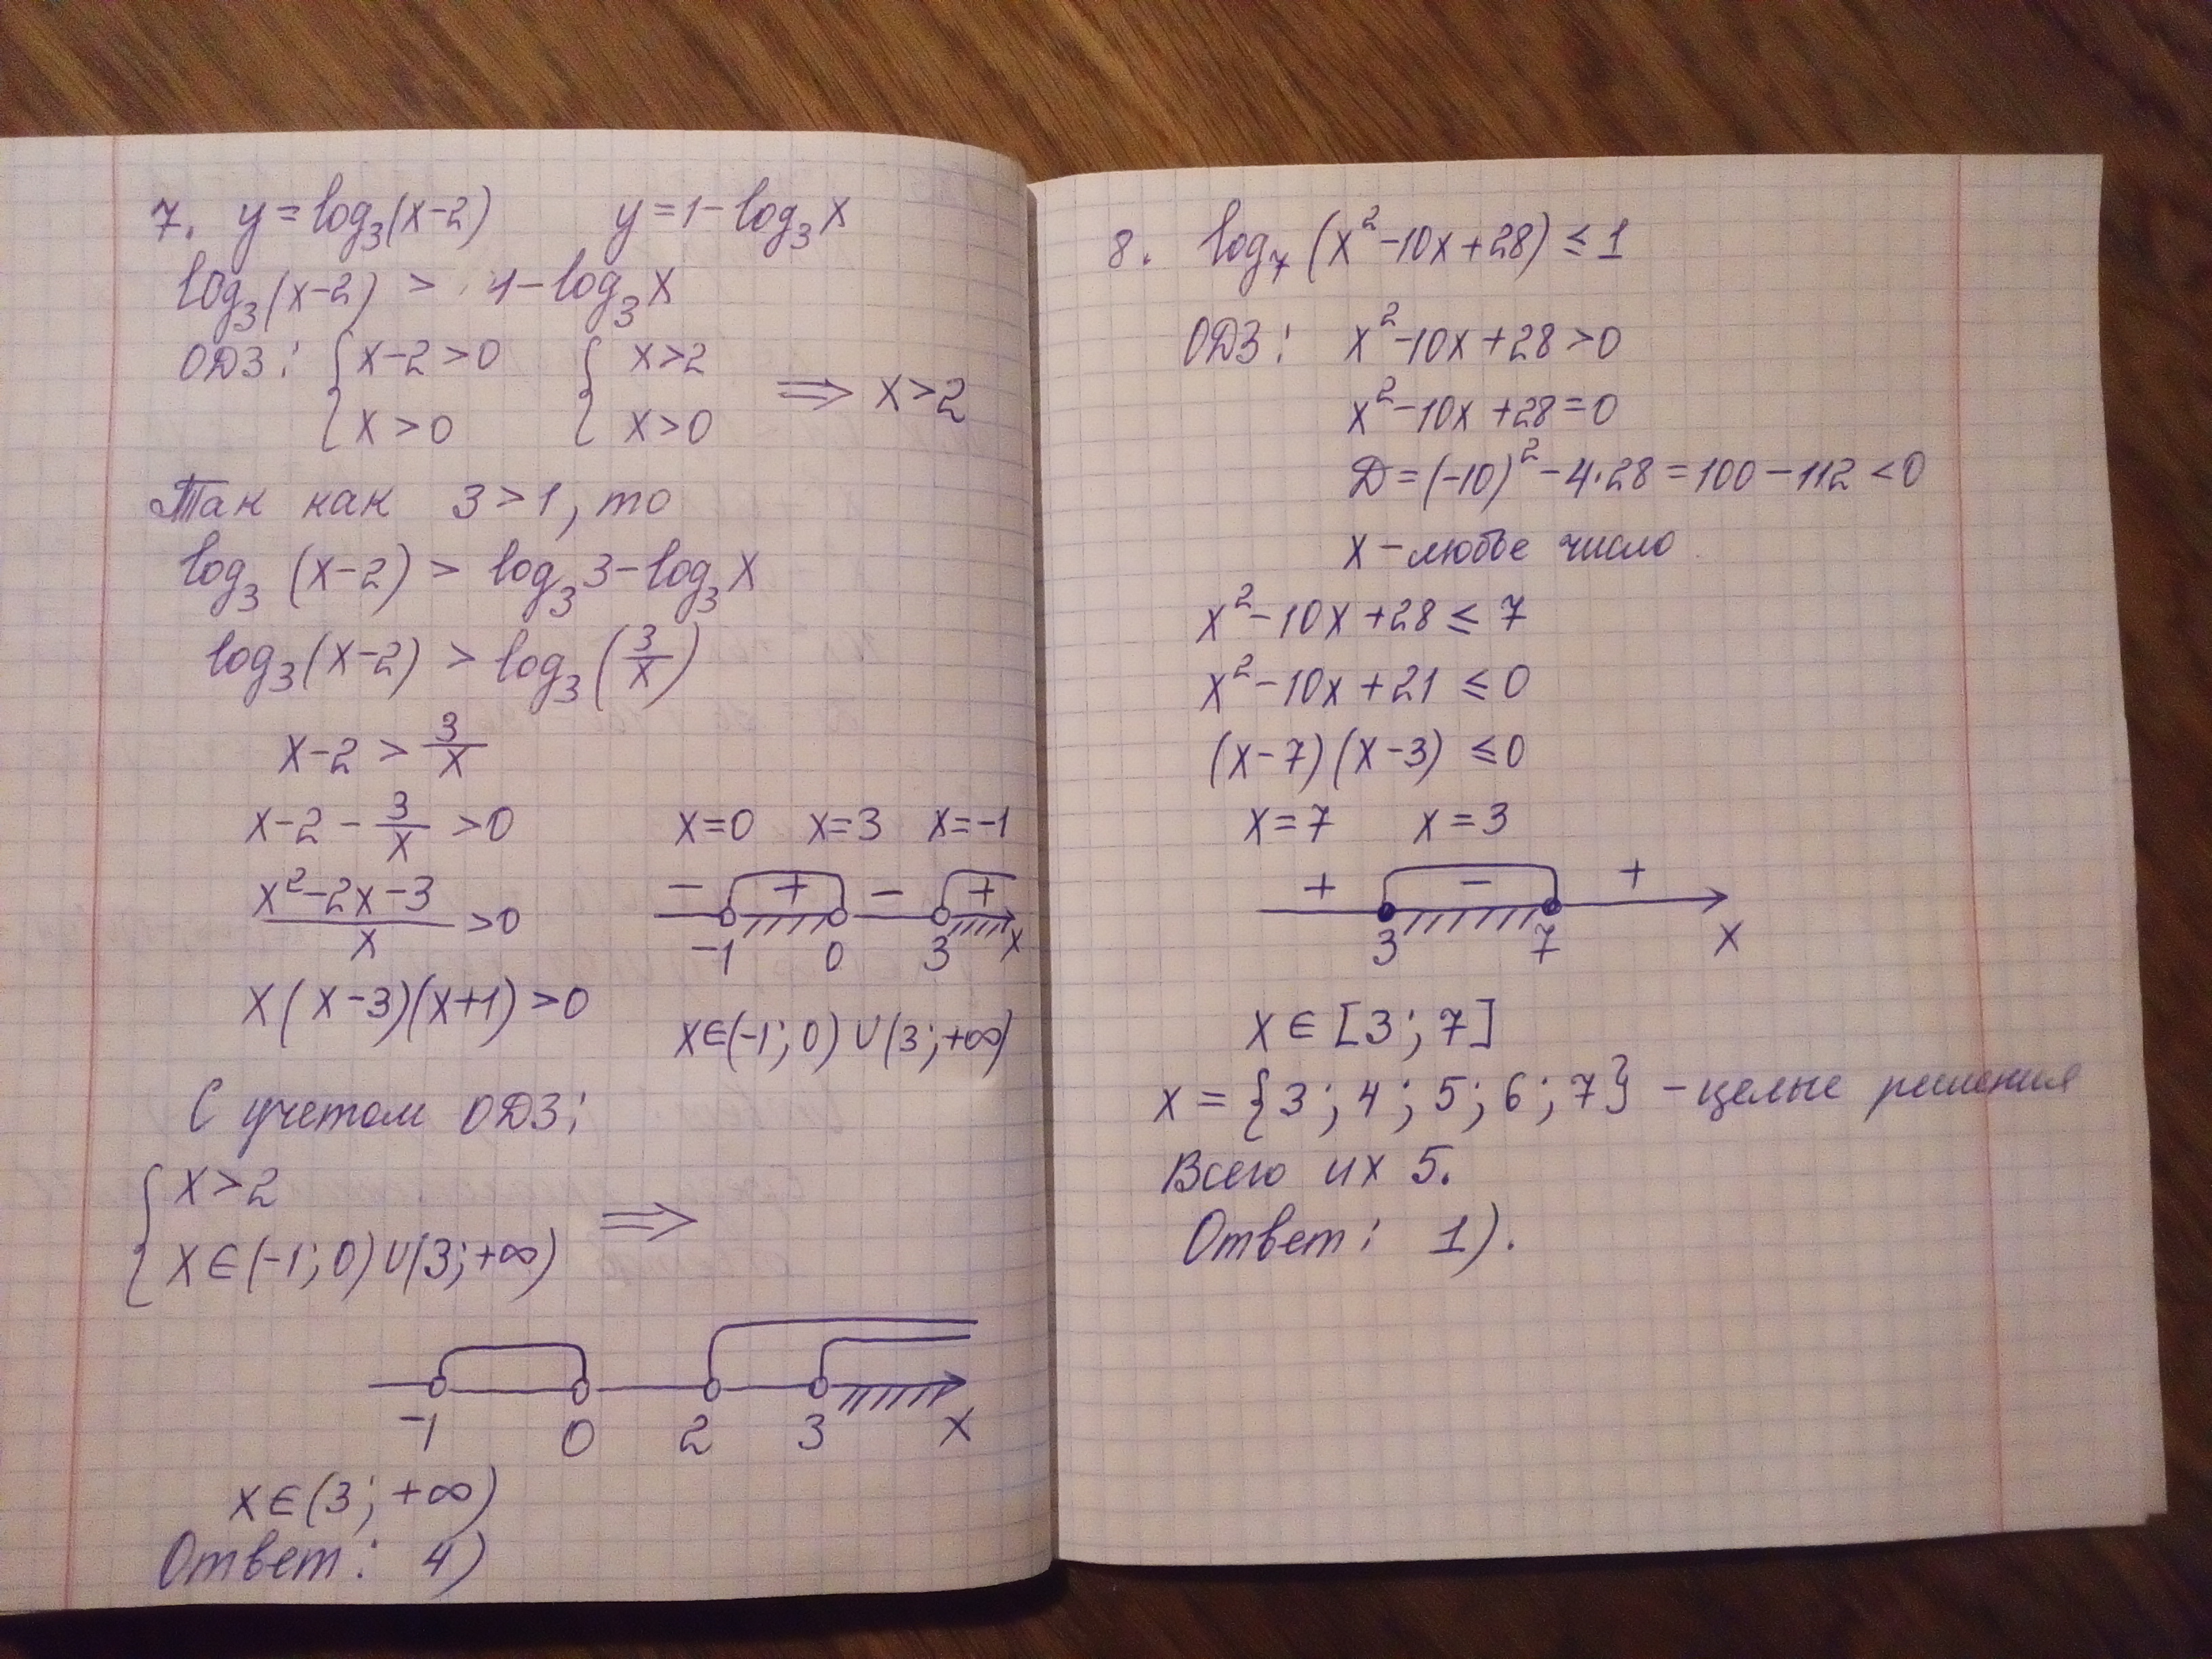 7. y = log₃(x-2) y = 1 - log₃x
log₃(x-2) > 1 - log₃x
ОДЗ: { x-2 > 0 { x > 2
x > 0 x > 0 ⟹ x > 2
Так как 3 > 1, то
log₃(x-2) > log₃3 - log₃x
log₃(x-2) > log₃(3/x)
x-2 > 3/x
x-2 - 3/x > 0
(x²-2x-3)/x > 0
x(x-3)(x+1) > 0
x=0 x=3 x=-1
- + - +
-1 0 3 x
x∈(-1; 0) ∪ (3; +∞)
С учетом ОДЗ:
{ x > 2
x∈(-1; 0) ∪ (3; +∞) ⟹
-1 0 2 3 x
x∈(3; +∞)
Ответ: 4)
8. log₇(x²-10x+28) ≤ 1
ОДЗ: x²-10x+28 > 0
x²-10x+28 = 0
Д = (-10)² - 4·28 = 100 - 112 < 0
x - любое число
x²-10x+28 ≤ 7
x²-10x+21 ≤ 0
(x-7)(x-3) ≤ 0
x = 7 x = 3
+ - +
3 7 x
x ∈ [3; 7]
x = {3; 4; 5; 6; 7} - целые решения
Всего их 5.
Ответ: 1).